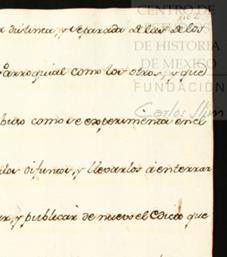 distinta, y separada de las de los
Parroquial como los otros, y que
como se experimenta en el
los difuntos, y llevarlos á enterrar
y publicar de nuevo el Edicto que
CENTRO DE
DE HISTORIA
DE MÉXICO
FUNDACIÓN
Carlos Slim